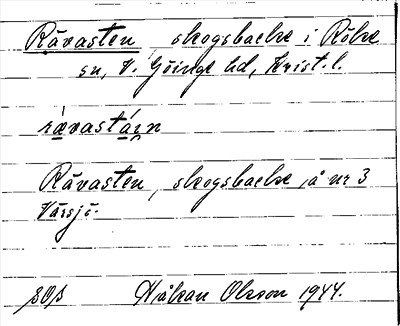 Råvasten, skogsbacke i Röke
sn, V. Göinge hd, Krist. l.
rävastá̱i̯n
Råvasten, skogsbacke, å nr 3
Värsjö.
Håkan Olsson 1944.